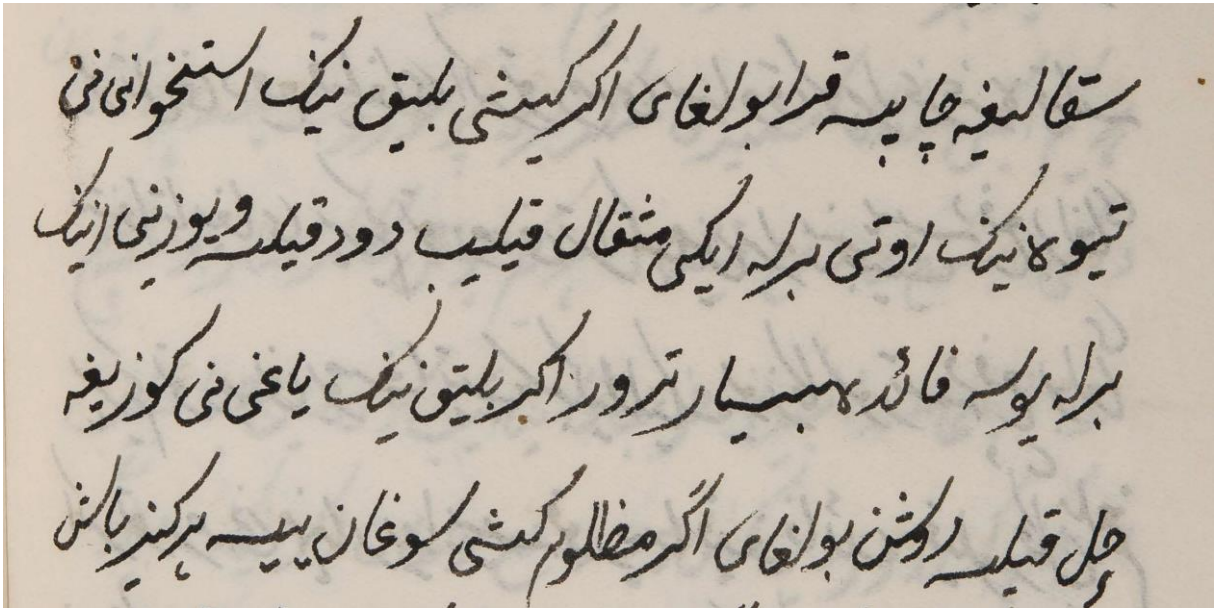 سقالیغه چاپسه قرا بولغای اکر کیشی بلیق نینک استخوانی نی
تیوه نینک اوتی برله ایکی مثقال قیلیب دود قیلسه و یوزینی انینک
برله یوسه فائده بسیار ترور اکر بلیق نینک یاغی نی کوزیغه
حل قیلسه روشن بولغای اگر مظلوم کیشی سوغان ییسه هرکیز باش